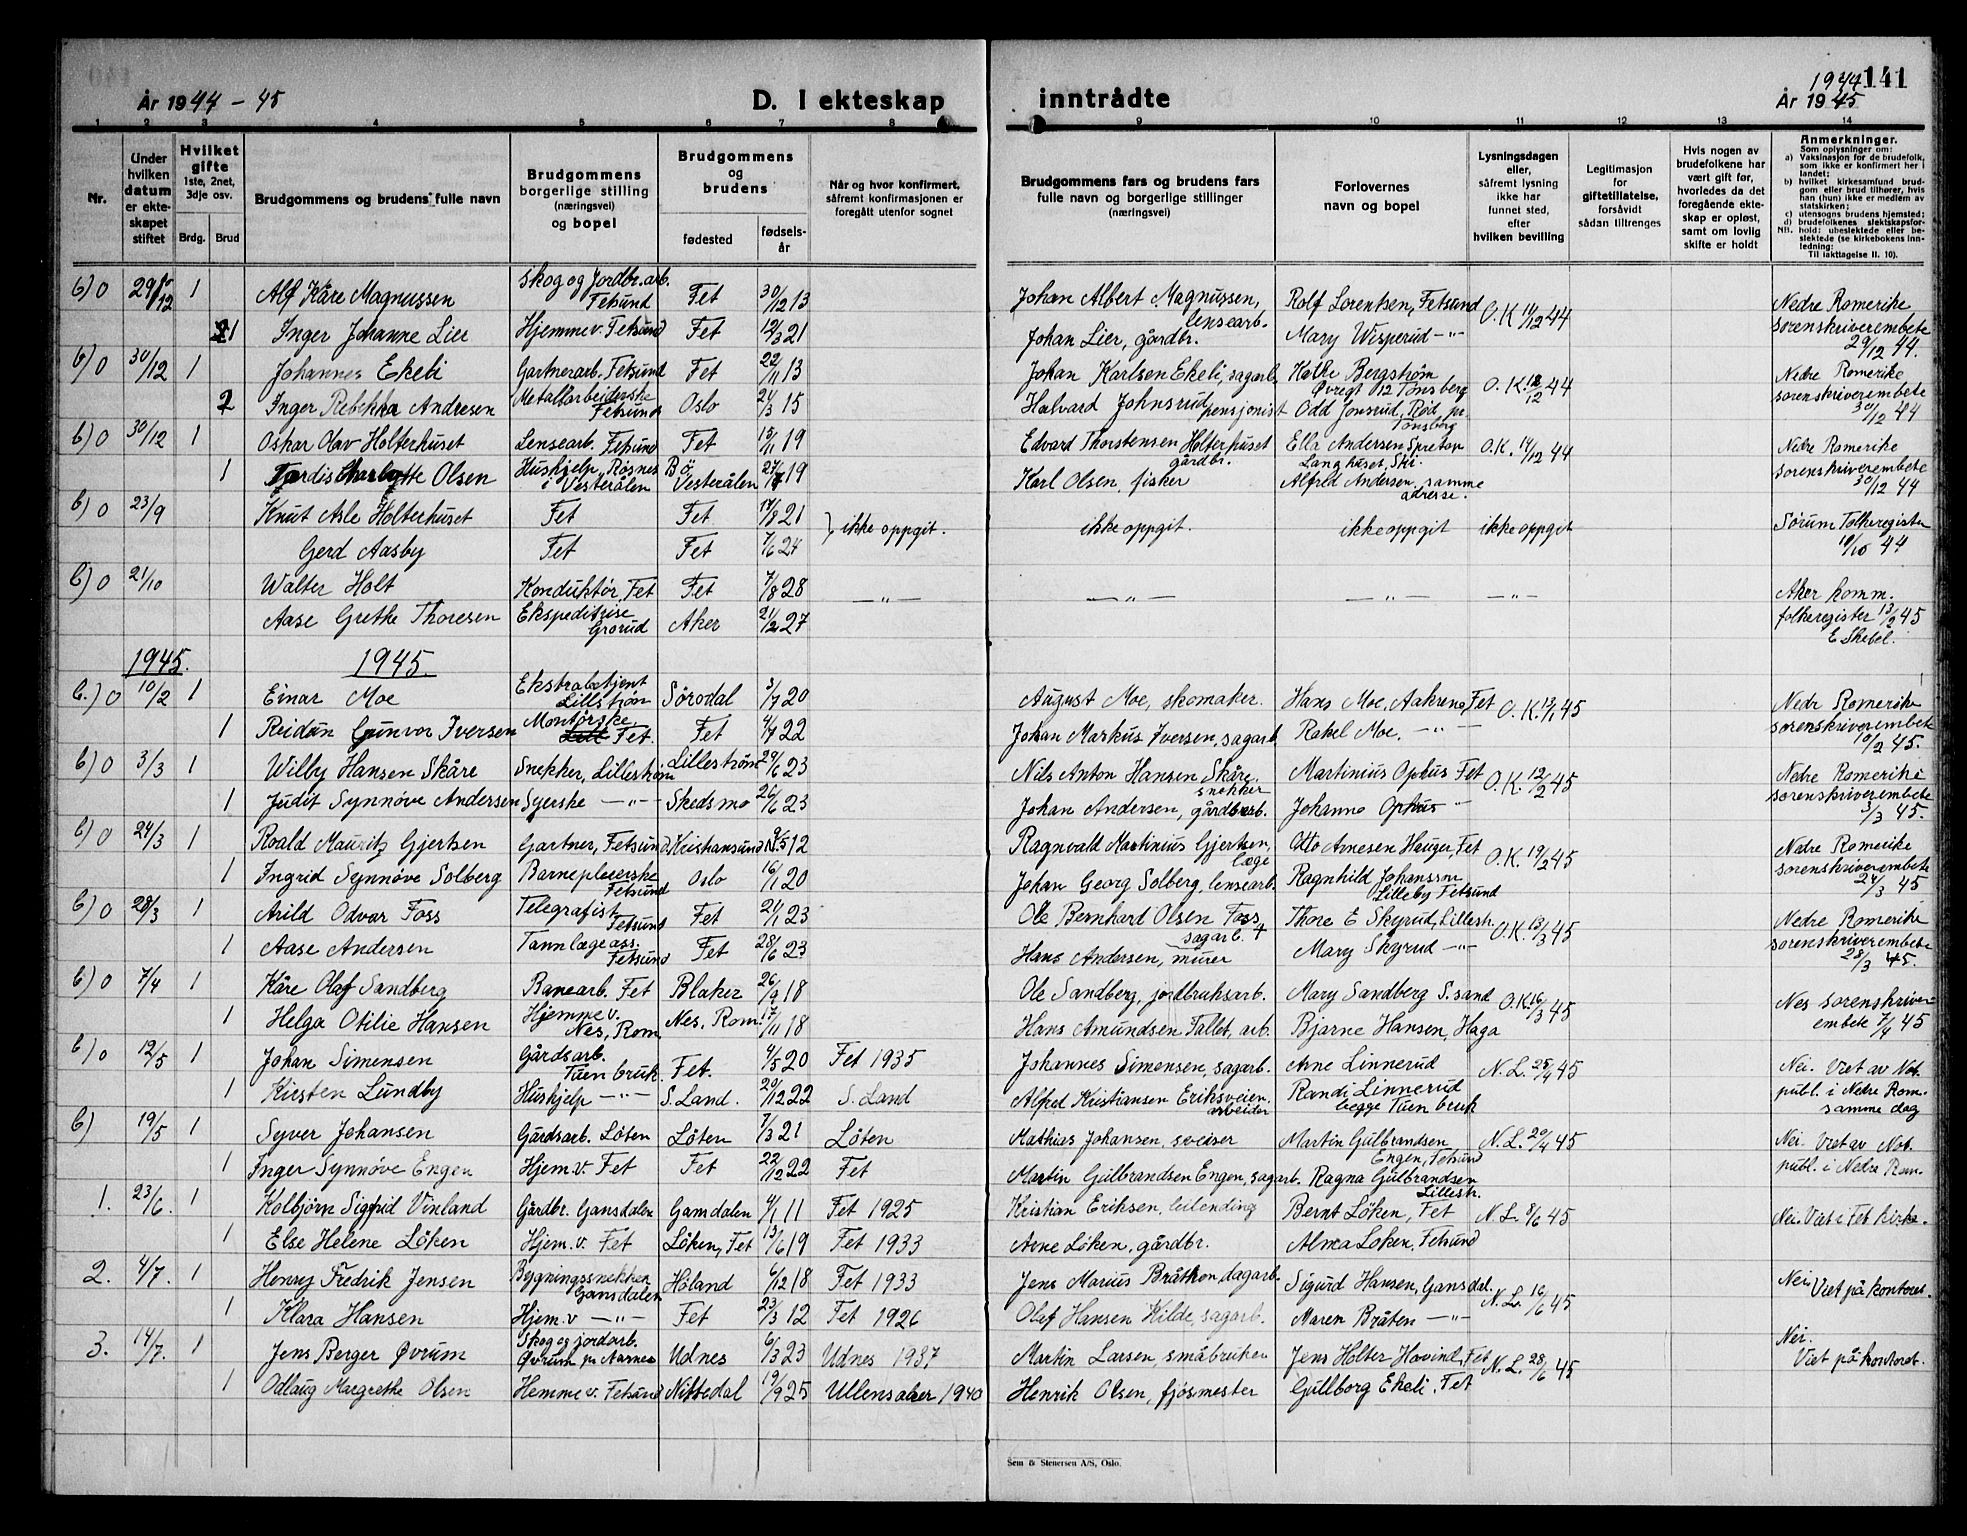 År 1944 - 45
D. I ekteskap
inntrådte
1944
141
År 1945
1 2 3 4 5 6 7 8 9 10 11 12 13 14
Nr.
Under hvilken datum er ekteskapet stiftet
Hvilket gifte 1ste, 2net, 3dje osv.
Brdg. Brud
Brudgommens og brudens fulle navn
Brudgommens borgerlige stilling (næringsvei) og bopel
Brudgommens og brudens
fødested
fødselsår
Når og hvor konfirmert, såfremt konfirmasjonen er foregått utenfor sognet
Brudgommens fars og brudens fars fulle navn og borgerlige stillinger (næringsvei)
Forlovernes navn og bopel
Lysningsdagen eller, såfremt lysning ikke har funnet sted, efter hvilken bevilling
Legitimasjon for giftetillatelse, forsåvidt sådan tiltrenges
Hvis nogen av brudefolkene har vært gift før, hvorledes da det foregående ekteskap er opløst, samt om lovlig skifte er holdt
Anmerkninger.
Som oplysninger om:
a) Vaksinasjon for de brudefolk, som ikke er konfirmert her i landet;
b) hvilket kirkesamfund brudgom eller brud tilhører, hvis han (hun) ikke er medlem av statskirken;
c) utensogns brudens hjemsted;
d) brudefolkenes slektskapsforhold: ubeslektede eller beslektede (se kirkebokens innledning:
NB. Til iakttagelse II. 10).
b) 0 29/12 1 Alf Kåre Magnussen Skog og Jordbr. arb. Fetsund Fet 30/12 13 Johan Albert Magnussen, lensearb. Rolf Lorentsen, Fetsund O.K 14/12 44 Nedre Romerike
1 Inger Johanne Lier Hjemme v. Fetsund Fet 12/3 21 Johan Lier, gårdbr. Mary Wisperud -"- sorenskriverembete 29/12 44.
b) 0 30/12 1 Johannes Ekeli Gartnerarb. Fetsund Fet 22/11 13 Johan Karlsen Ekeli, sagarb. Käthe Bergstrøm Øvregt 12 Tønsberg O.K. 12/12 44 Nedre Romerike
2 Inger Rebekka Andresen Metallarbeiderske Fetsund Oslo 24/3 15 Halvard Johnsrud pensjonist Odd Jonsrud, Rød pr. Tønsberg sorenskriverembete 30/12 44
b) 0 30/12 1 Oskar Olav Holterhuset Lensearb. Fetsund Fet 15/11 19 Edvard Thorstensen Holterhuset gårdbr. Ella Andersen Langhuset, Ski. O.K. 14/12 44 Nedre Romerike
1 Tordis Charlotte Olsen Hushjelp, Røsnes i Vesterålen Bö Vesterålen 27/7 19 Karl Olsen, fisker Alfred Andersen, samme adresse. sorenskriverembete 30/12 44
b) 0 23/9 Knut Asle Holterhuset Fet Fet 17/8 21 } ikke oppgit. ikke oppgit. ikke oppgit ikke oppgit Sørum Folkeregister
Gerd Aasby Fet Fet 7/6 24 10/10 44
b) 0 21/10 Walter Holt Konduktør, Fet Fet 7/8 28 -"- -"- -"- -"- Aker komm.
Aase Grethe Thoresen Ekspeditrise Grorud Aker 21/2 27 folkeregister 13/2 45 E Skebel.
1945. 1945.
b.) 0 10/2 1 Einar Moe Ekstrabetjent Lillestrøm Sørodal 3/7 20 August Moe, skomaker. Hans Moe, Aakrene, Fet O.K. 12/1 45 Nedr Romerike
1 Reidun Gunvor Iversen Montørske, Fet. Fet 4/7 22 Johan Markus Iversen, sagarb. Rakel Moe. -"- sorenskriverembete 10/2 45.
b) 0 3/3 1 Wilby Hansen Skåre Snekker, Lillestrøm Lillestrøm 29/6 23 Nils Anton Hansen Skåre. snekker Martinius Ophus Fet O.K. 12/2 45 Nedre Romerike
1 Judit Synnøve Andersen Syerske -"- Skedsmo 26/6 23 Johan Andersen, gårdbarb. Johanne Ophus -"- sorenskriverembete 3/3 45.
b) 0 24/3 1 Roald Mauritz Gjertsen Gartner, Fetsund Kristiansund N. 9/5 12 Ragnvald Martinius Gjertsen, læge Otto Arnesen Heuger, Fet O.K. 19/2 45 Nedre Romerike
1 Ingrid Synnøve Solberg Barnepleierske Fetsund Oslo 16/1 20 Johan Georg Solberg, lensearb. Ragnhild Johansson Lilleby Fetsund sorenskriverembete 24/3 45
b) 0 28/3 1 Arild Odvar Foss Telegrafist Fetsund Fet 21/1 23 Ole Bernhard Olsen Foss sagarb. + Thore E Skyrud, Lillestr. O.K. 13/3 45 Nedre Romerike
1 Aase Andersen Tannlægeass. Fetsund Fet 28/6 23 Hans Andersen, murer Mary Skyrud -"- sorenskriverembete 28/3 45.
b) 0 7/4 1 Kåre Olaf Sandberg Banearb. Fet Blaker 26/9 18 Ole Sandberg, jordbruksarb. Mary Sandberg S. sand O.K. 16/3 45 Nes sorenskriver
1 Helga Otilie Hansen Hjemme v. Nes, Rom. Nes, Rom. 17/11 18 Hans Amundsen Fallet, arb. Bjarne Hansen, Haga embete 7/4 45
b) 0 12/5 1 Johan Simensen Gårdsarb. Tuen bruk. Fet. 4/5 20 Fet 1935 Johannes Simensen, sagarb. Arne Linnerud N.L. 25/4 45 Nei. Viet av Not.
1 Kirsten Lundby Hushjelp -"- S. Land. 20/12 22 S. Land Alfred Kristiansen Eriksveien. arbeider Randi Linnerud begge Tuen bruk publ. i Nedre Rom. samme dag
b) 19/5 1 Syver Johansen Gårdsarb. Löten Löten 7/3 21 Löten Mathias Johansen, sveiser Martin Gulbrandsen Engen, Fetsund N.L. 20/4 45 Nei. Viet av Not.
1 Inger Synnøve Engen Hjem. v. Fet Fet 22/12 22 Fet Martin Gulbrandsen Engen, sagarb. Ragna Gulbrandsen Lillestr. publ. i Nedre Rom.
1. 23/6. 1 Kolbjørn Sigfrid Vinland Gårdbr. Gansdalen Gamdalen 4/1 11 Fet 1925 Kristian Eriksen, leilending Bernt Löken, Fet N.L. 8/6 45 Nei. Viet i Fet kirke.
1 Else Helene Löken Hjem. v. Fet Löken, Fet 13/6 19 Fet 1933 Arne Löken, gårdbr. Alma Løken, Fetsund
2. 4/7. 1 Henry Fredrik Jensen Bygningssnekker Gansdalen Høland 6/12 18 Fet 1933 Jens Marius Bråthen, dagarb. Sigurd Hansen, Gansdal. N.L. 16/6 45 Nei. Viet på kontoret.
1 Klara Hansen Hjem. v -"- Fet 23/3 12 Fet 1926 Olaf Hansen Kilde, sagarb. Maren Bråten -"-
3. 14/7. 1 Jens Berger Øvrum Skog og jordarb. Øvrum pr Aarnes Udnes 6/3 23 Udnes 1937 Martin Larsen, småbruker Jens Holter Hovind, Fet N.L. 28/6 45 Nei. Viet på kontoret.
1 Odlaug Margrethe Olsen Hemme v. Fetsund Nittedal 19/9 25 Ullensaker 1940 Henrik Olsen, fjösmester Gullborg Ekeli, Fet
Sem & Stenersen A/S, Oslo.